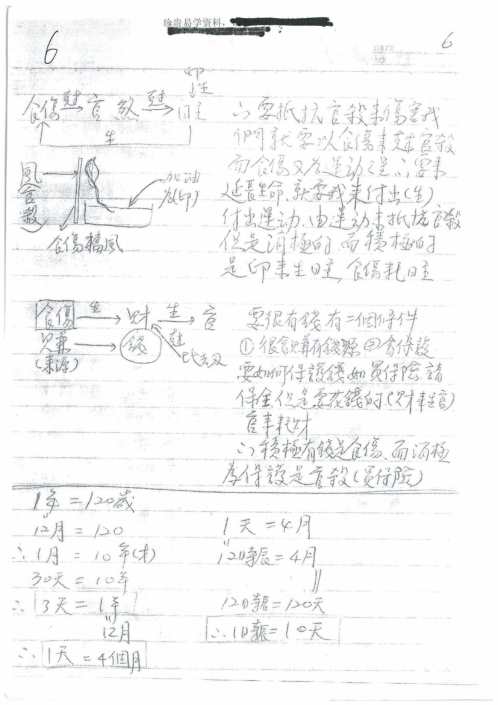 易学资料
6
6
印
食傷 剋 官殺 剋 日主
生
∴要抵抗官殺來傷害我
們就要以食傷來剋官殺
而食傷又為運動,∴要
延長生命,就要我來付出(生)
付出運動,由運動來抵抗官殺
但是消極的,而積極的
是印來生日主,食傷耗日主
風(官殺)
加油
為(印)
食傷擋風
食傷 生 財 生 官
(來源) 錢 比劫
要很有錢有二個條件
①很會賺有錢源 ②會保護
要如何保護錢如買保險請
保全但是要花錢的(財來生官)
官來耗財
∴積極有錢是食傷,而消極
為保護是官殺(買保險)
1年=120歲
12月=120
∴1月=10年(才)
30天=10年
∴3天=1年
12月
∴1天=4個月
1天=4月
12時辰=4月
12時辰=120天
∴1時辰=10天